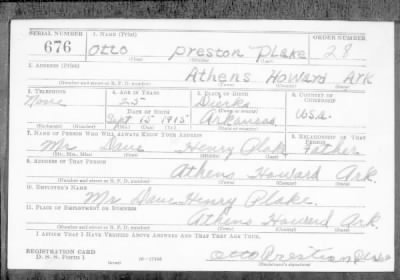 SERIAL NUMBER 1. NAME (Print) ORDER NUMBER
676 Otto Preston Plake 28
(First) (Middle) (Last)
2. ADDRESS (Print)
Athens Howard Ark
(Number and street or R. F. D. number) (Town) (County) (State)
3. TELEPHONE 4. AGE IN YEARS 5. PLACE OF BIRTH 6. COUNTRY OF CITIZENSHIP
None 25 Dierks
DATE OF BIRTH (Town or county)
Sept 15 1915 Arkansas USA.
(Mo.) (Day) (Yr.) (State or country)
7. NAME OF PERSON WHO WILL ALWAYS KNOW YOUR ADDRESS 8. RELATIONSHIP OF THAT PERSON
Mr Dave Henry Plake Father
(Mr., Mrs., Miss) (First) (Middle) (Last)
9. ADDRESS OF THAT PERSON
Athens Howard Ark.
(Number and street or R. F. D. number) (Town) (County) (State)
10. EMPLOYER'S NAME
Mr Dave Henry Plake.
11. PLACE OF EMPLOYMENT OR BUSINESS
Athens Howard Ark.
(Number and street or R. F. D. number) (Town) (County) (State)
I AFFIRM THAT I HAVE VERIFIED ABOVE ANSWERS AND THAT THEY ARE TRUE.
REGISTRATION CARD
D. S. S. Form 1 (over) Otto
(Registrant's signature)